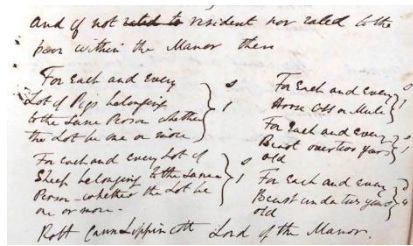 and if not rated to resident nor rated to the
poor within the Manor then
For Each and every
Lot of Pigs belonging
to the same Person whether
the Lot be one or more
0
1
For each and every Lot of
Sheep belonging to the same
Person - whether the Lot be
one or more.
0
1
For Each and every
Horse Ass or Mule
0
1
For Each and every
Beast over two years
old
For Each and every
Beast under two years
old
Robt Cann Lippincott Lord of the Manor.